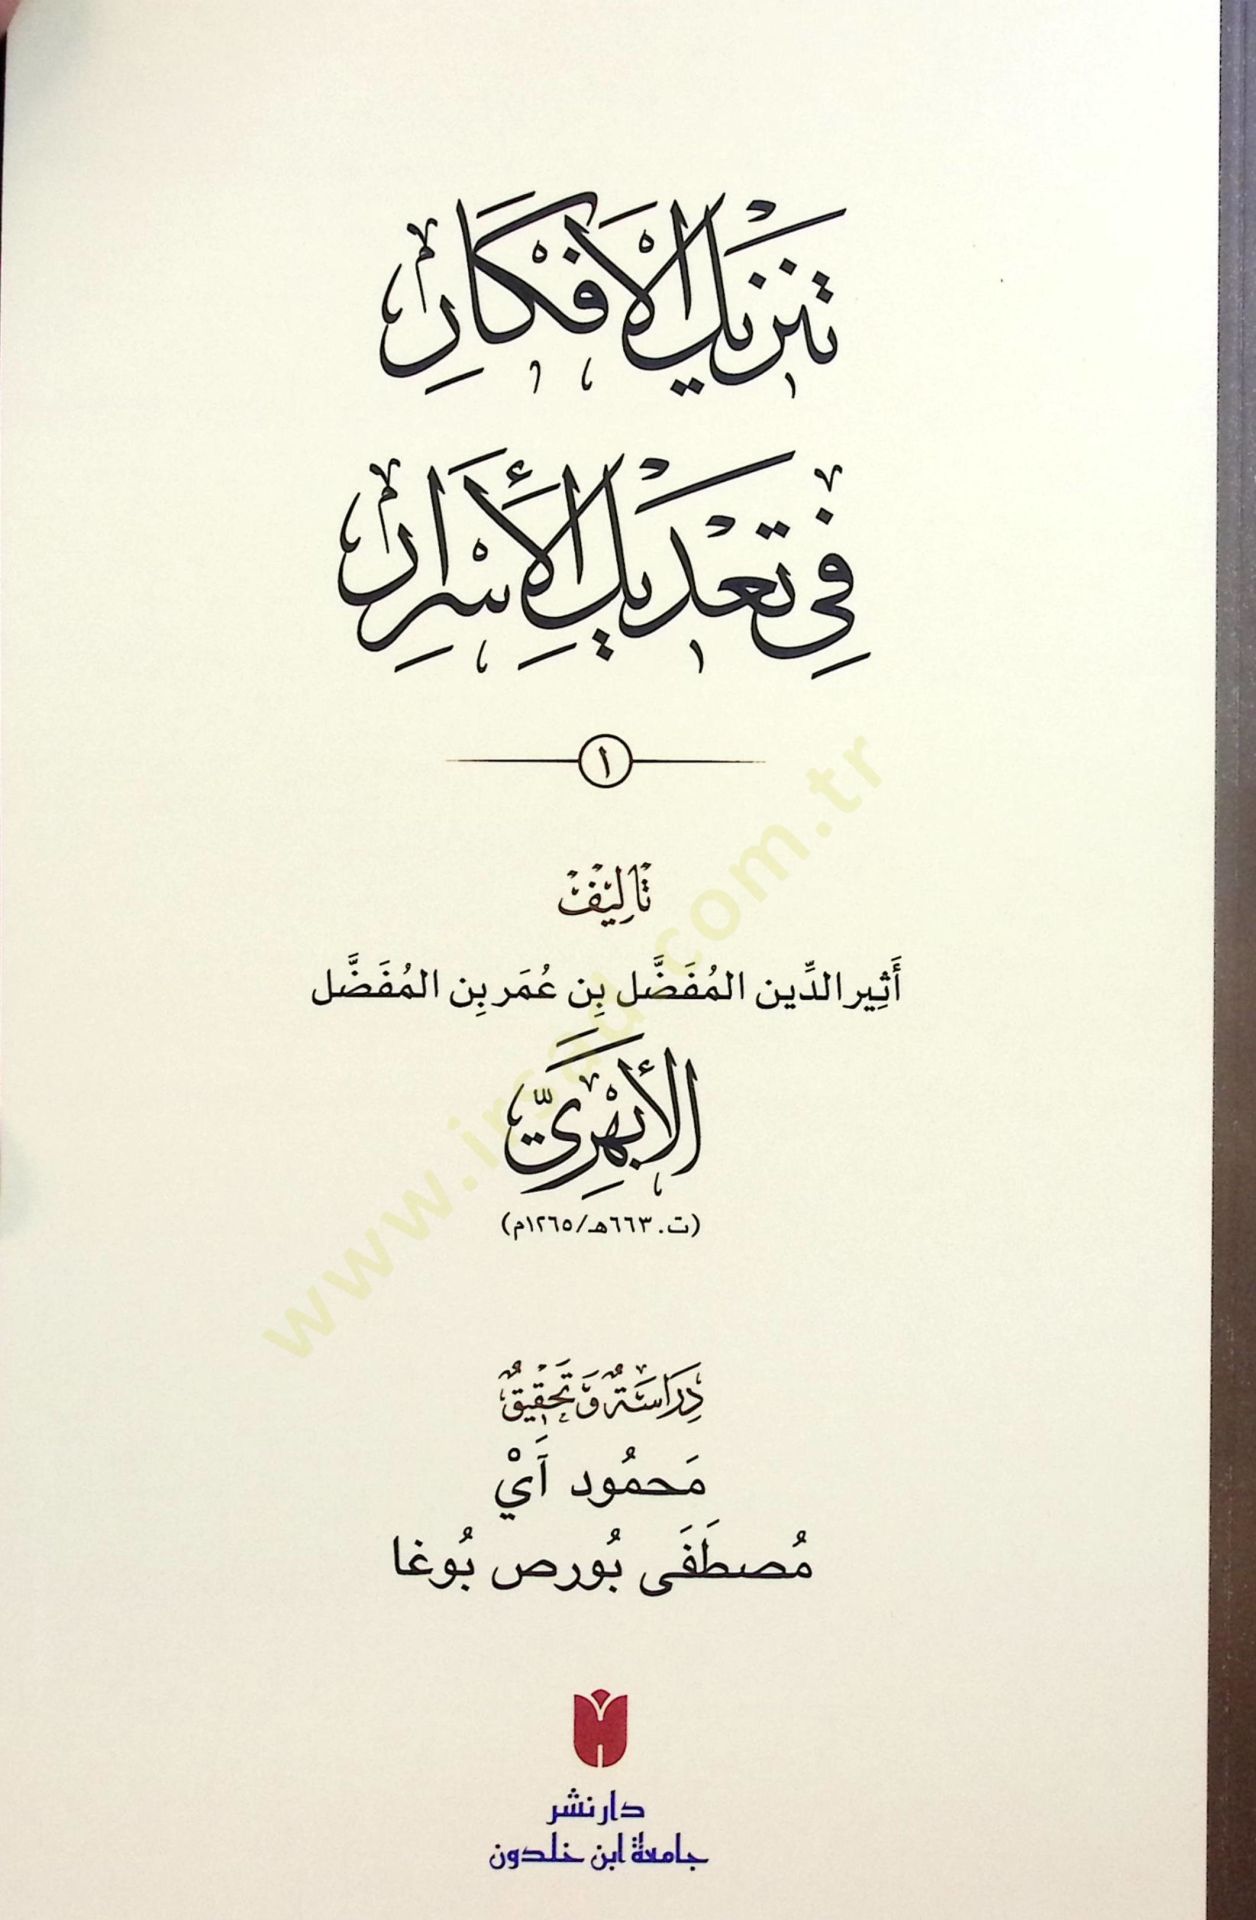 تنزيل الأفكار
في تعديل الأسرار
١
تأليف
أَثِير الدِّين المُفَضَّل بِن عُمَر بِن المُفَضَّل
الأبهريّ
(ت. ٦٦٣هـ/١٢٦٥م)
دراسة وتحقيق
مَحمُود آيْ
مُصطَفَى بُورص بُوغا
دار نشر
جامعة ابن خلدون
www.irsad.com.tr